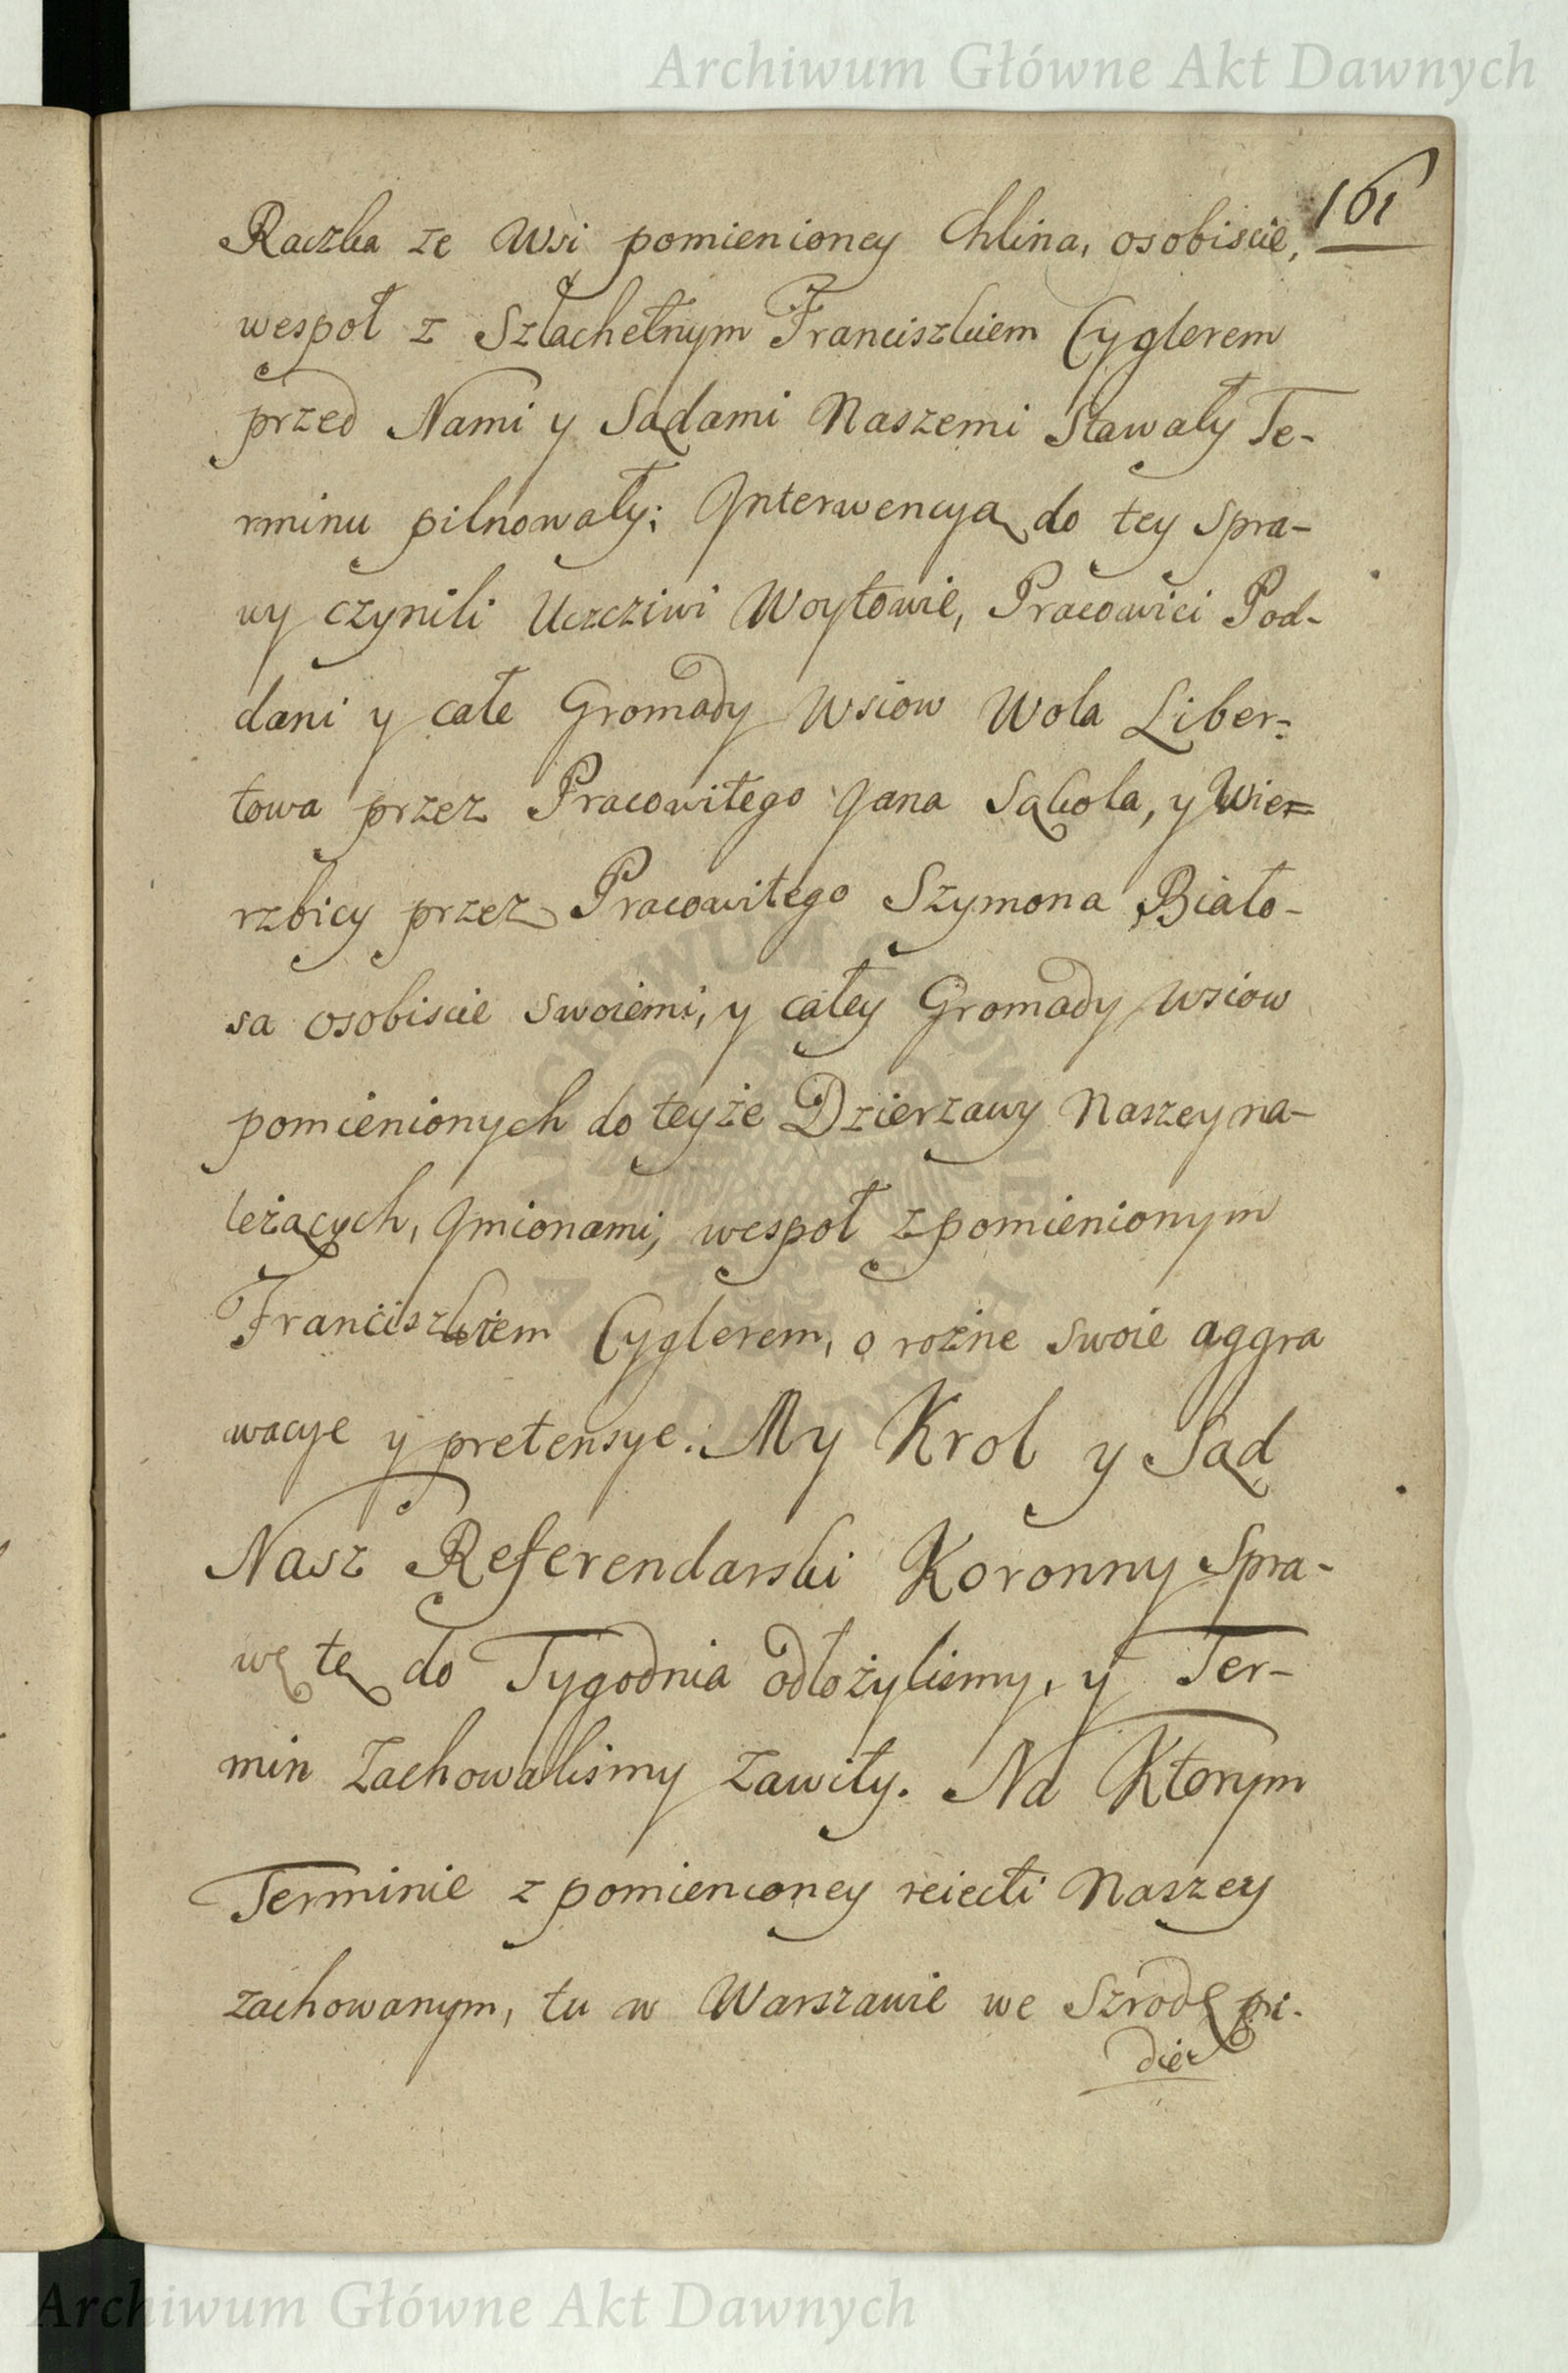 Archiwum Główne Akt Dawnych
161
Raczka ze Wsi pomienioney Chlina, osobiscie,
wespoł z Szlachetnym Franciszkiem Cyglerem
przed Nami y Sądami Naszemi Stawały Te-
rminu pilnowały; Interwencyą do tey Spra-
wy czynili Uczciwi Woytowie, Pracowici Pod-
dani y całe Gromady Wsiow Wola Liber=
towa przez Pracowitego Jana Sąkola, y Wie=
rzbicy przez Pracowitego Szymona Biało-
sa osobiscie swoiemi, y całey Gromady Wsiow
pomienionych do teyże Dzierzawy Naszey na-
leżących, Jmionami, wespoł z pomienionym
Franciszkiem Cyglerem, o rożne swoie aggra
wacye y pretensye. My Krol y Sąd
Nasz Referendarski Koronny Spra-
wę tę do Tygodnia odłożylismy, y Ter-
min Zachowalismy Zawity. Na Ktorym
Terminie z pomienioney reiekti Naszey
zachowanym, tu w Warszawie we Szrodę pri-
die
Archiwum Główne Akt Dawnych